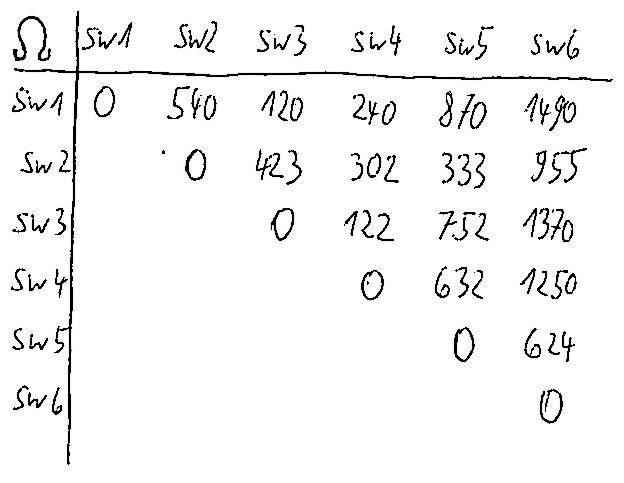 Ω SW1 SW2 SW3 SW4 SW5 SW6
SW1 0 540 120 240 870 1490
SW2 0 423 302 333 955
SW3 0 122 752 1370
SW4 0 632 1250
SW5 0 624
SW6 0